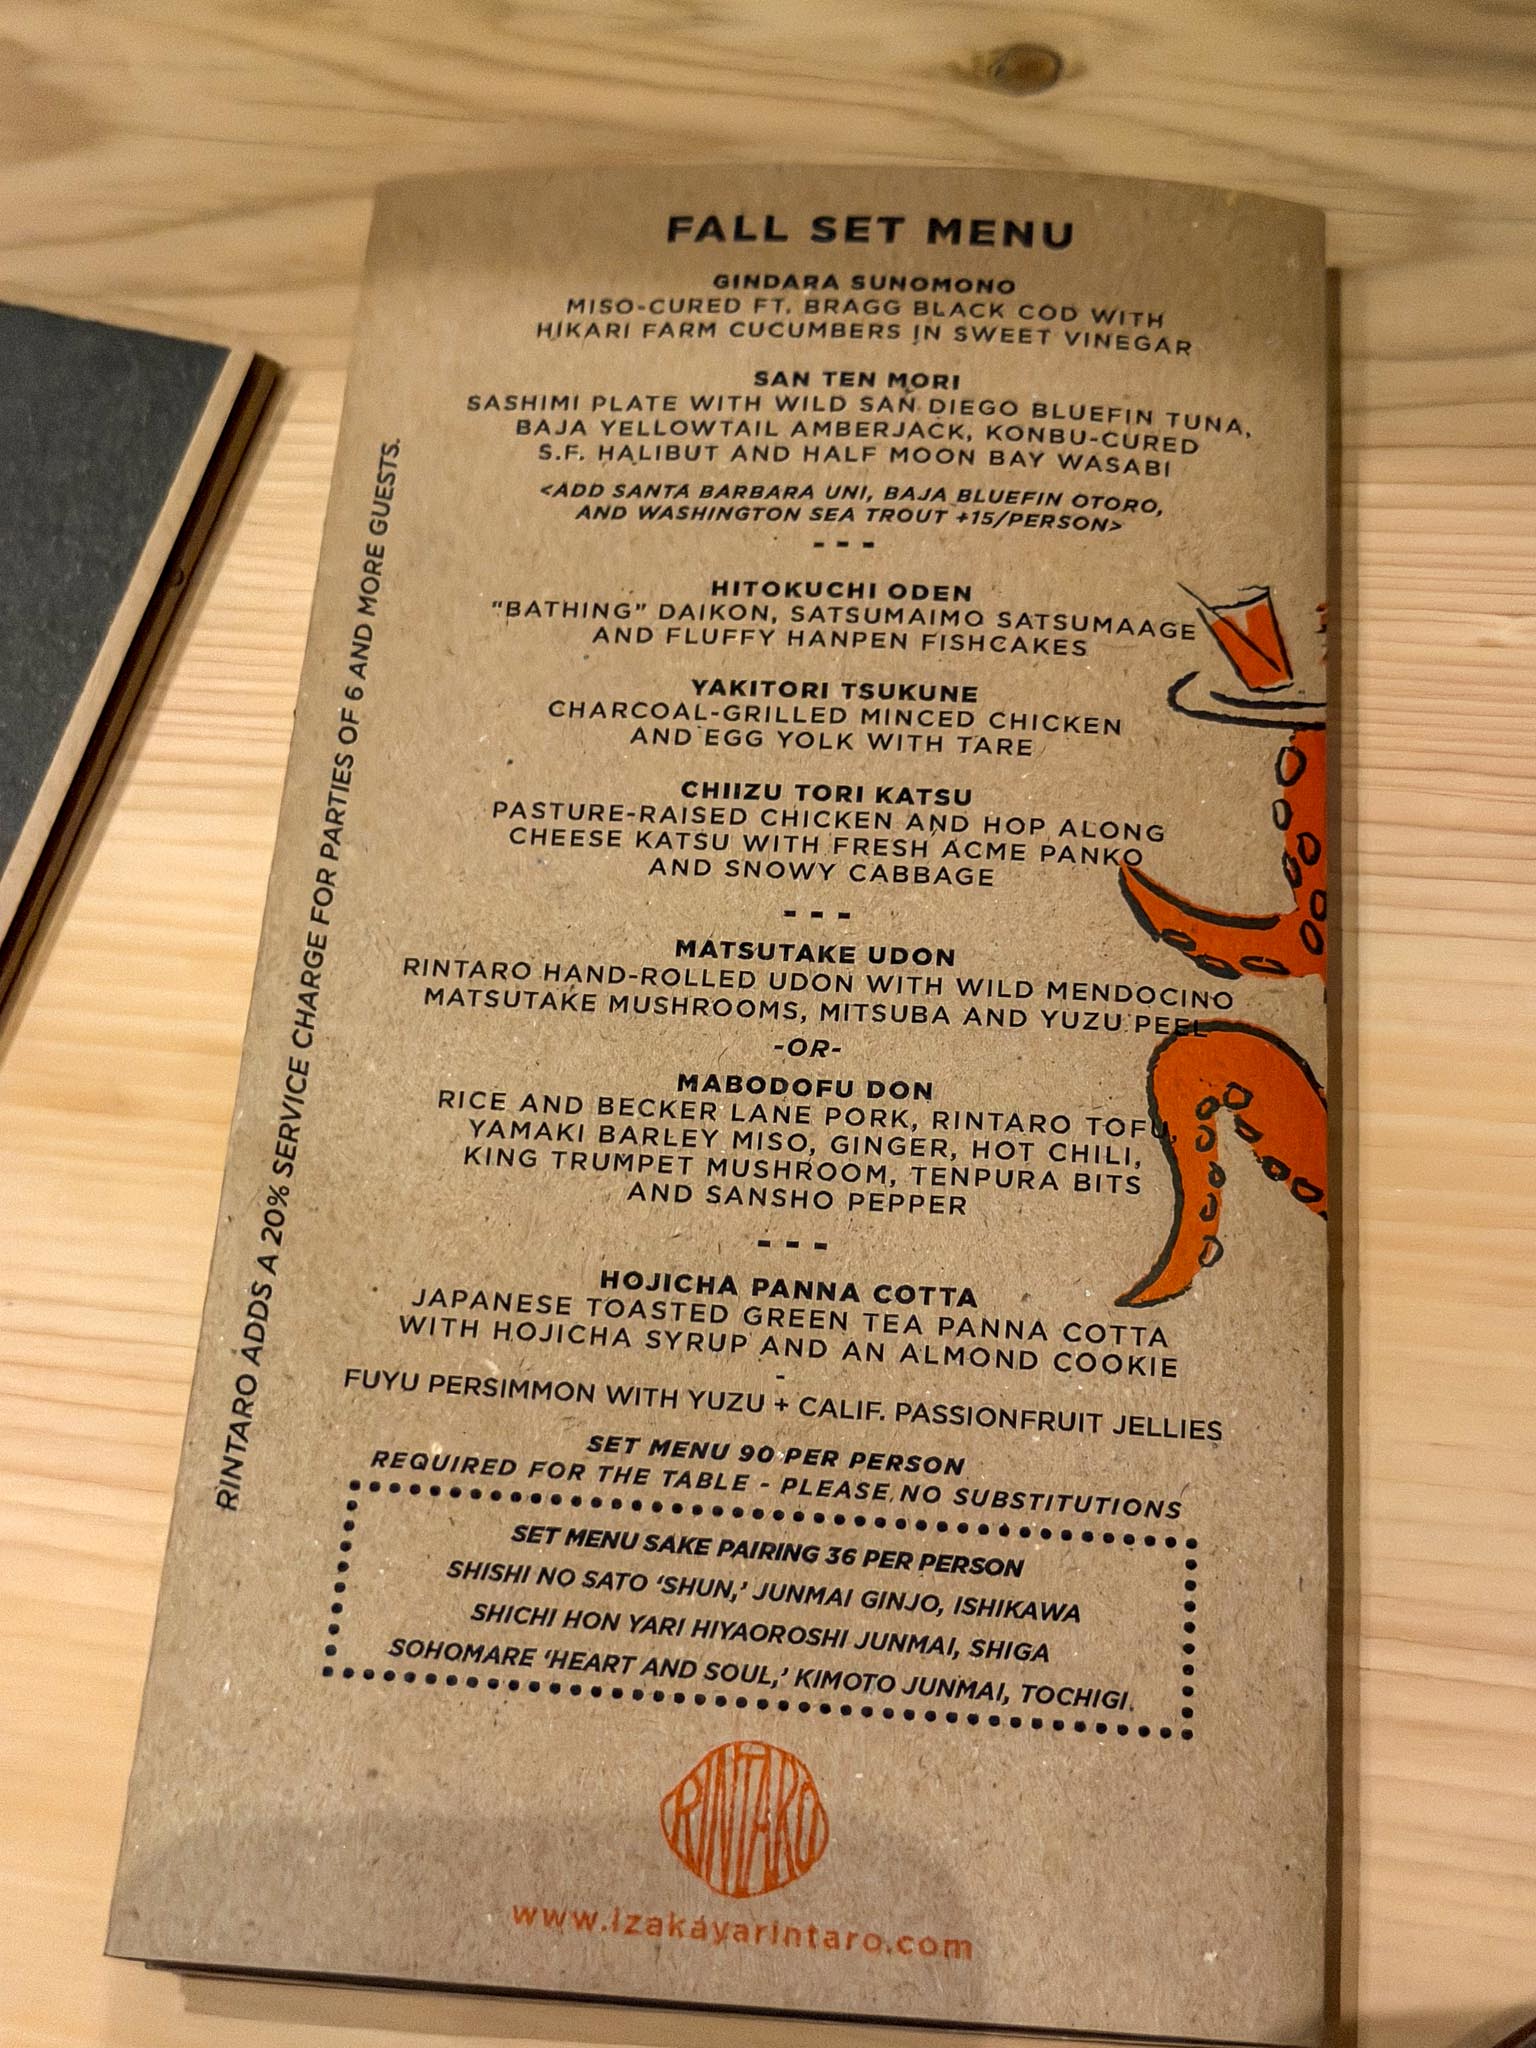 FALL SET MENU
GINDARA SUNOMONO
MISO-CURED FT. BRAGG BLACK COD WITH
HIKARI FARM CUCUMBERS IN SWEET VINEGAR
SAN TEN MORI
SASHIMI PLATE WITH WILD SAN DIEGO BLUEFIN TUNA,
BAJA YELLOWTAIL AMBERJACK, KONBU-CURED
S.F. HALIBUT AND HALF MOON BAY WASABI
<ADD SANTA BARBARA UNI, BAJA BLUEFIN OTORO,
AND WASHINGTON SEA TROUT +15/PERSON>
---
HITOKUCHI ODEN
"BATHING" DAIKON, SATSUMAIMO SATSUMAAGE
AND FLUFFY HANPEN FISHCAKES
YAKITORI TSUKUNE
CHARCOAL-GRILLED MINCED CHICKEN
AND EGG YOLK WITH TARE
CHIIZU TORI KATSU
PASTURE-RAISED CHICKEN AND HOP ALONG
CHEESE KATSU WITH FRESH ACME PANKO
AND SNOWY CABBAGE
---
MATSUTAKE UDON
RINTARO HAND-ROLLED UDON WITH WILD MENDOCINO
MATSUTAKE MUSHROOMS, MITSUBA AND YUZU PEEL
-OR-
MABODOFU DON
RICE AND BECKER LANE PORK, RINTARO TOFU,
YAMAKI BARLEY MISO, GINGER, HOT CHILI,
KING TRUMPET MUSHROOM, TENPURA BITS
AND SANSHO PEPPER
---
HOJICHA PANNA COTTA
JAPANESE TOASTED GREEN TEA PANNA COTTA
WITH HOJICHA SYRUP AND AN ALMOND COOKIE
-
FUYU PERSIMMON WITH YUZU + CALIF. PASSIONFRUIT JELLIES
SET MENU 90 PER PERSON
REQUIRED FOR THE TABLE - PLEASE, NO SUBSTITUTIONS
SET MENU SAKE PAIRING 36 PER PERSON
SHISHI NO SATO 'SHUN,' JUNMAI GINJO, ISHIKAWA
SHICHI HON YARI HIYAOROSHI JUNMAI, SHIGA
SOHOMARE 'HEART AND SOUL,' KIMOTO JUNMAI, TOCHIGI.
RINTARO
www.izakayarintaro.com
RINTARO ADDS A 20% SERVICE CHARGE FOR PARTIES OF 6 AND MORE GUESTS.